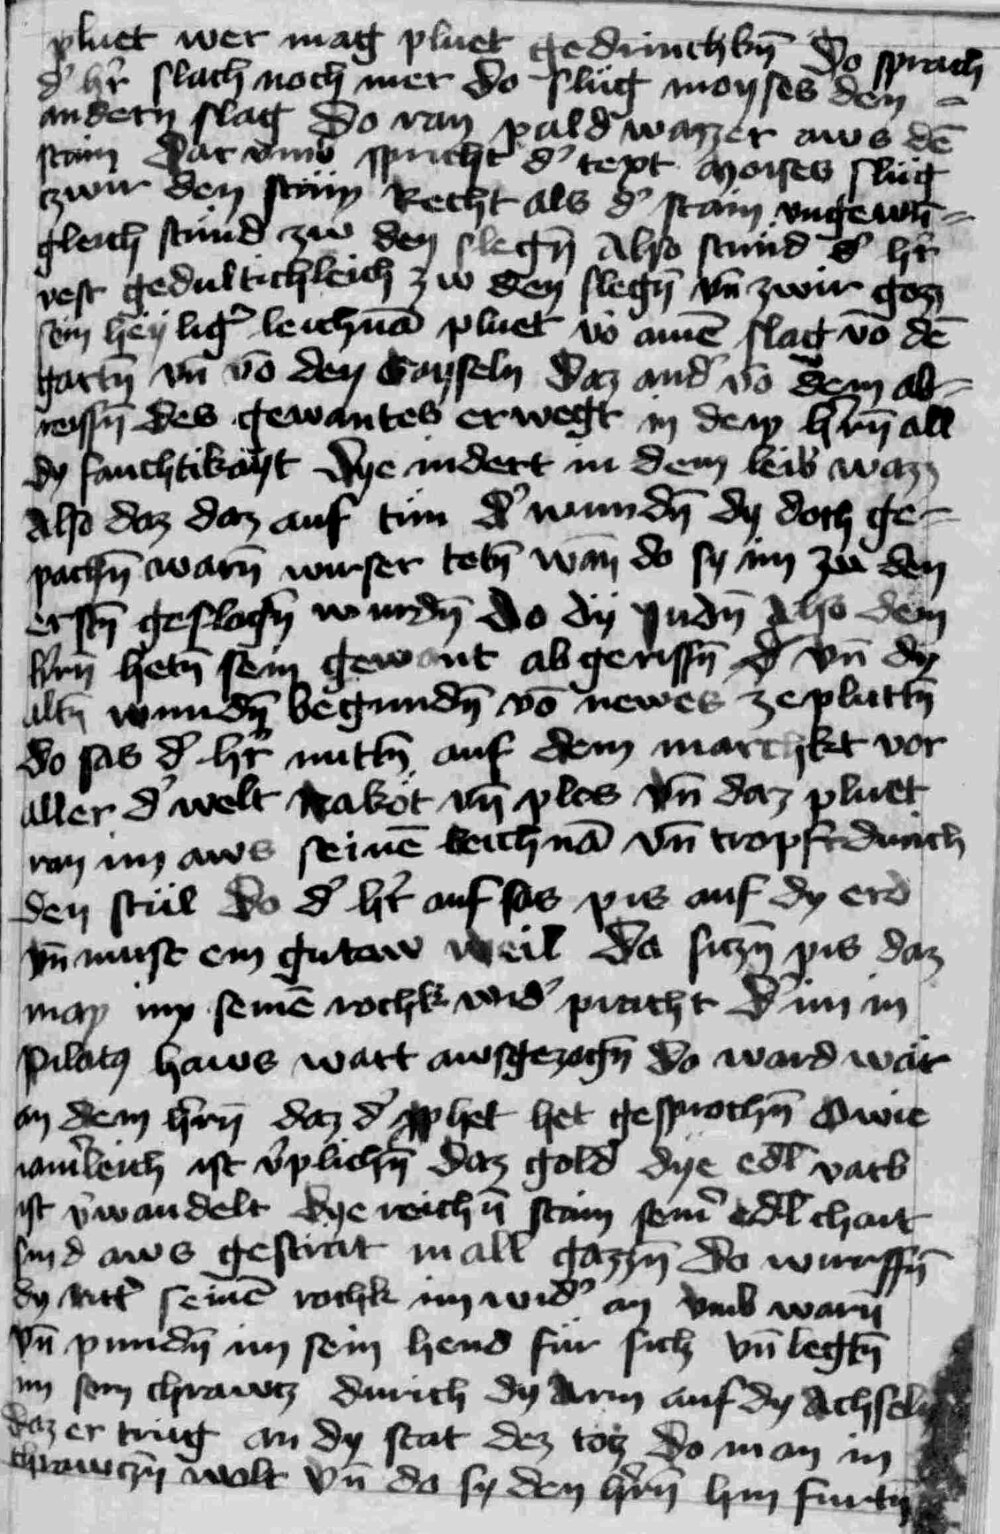 pluet wer mag pluet gedrinchkn̄ Do sprach
d' hr̄ slach noch mer do slüg moyses den =
andern slag Do ran pald wazzer aws dē
stain Dar vmb spricht d' text Moises slüg
zwir den stain Recht als d' stain vngewn̄ =
gleich stünd zw den slegn̄ Also stünd d' hr̄
vest gedultichleich zw den slegn̄ vn̄ zwir goz
sein heylig' leichnā pluet vō ainē slag vō dē
gartn̄ vn̄ vō den Gayseln Daz and' vō dem ab =
reissn̄ des gewantes erwegt in dem hr̄n̄ all
dy fauchtikayt Dye indert in dem leib waz
Also daz daz auf tün d' wundn̄ dy doch ge =
pachn̄ warn̄ wirser tetn̄ wan̄ do sy im zü den
erstn̄ geslagn̄ wurdn̄ Do dy yudn̄ Also dem
hr̄n̄ hetn̄ sein gewant abgerissn̄ vn̄ dy
altn̄ wundn̄ begundn̄ vō newes zeplüttn̄
do sas d' hr̄ mittn̄ auf dem marchkt vor
aller d' welt naköt vn̄ plos vn̄ daz pluet
ran im aws seinē leichnā vn̄ tropft durich
den stül Do d' hr̄ auf sas pis auf dy erd
vn̄ must ein gutew weil Da siczn̄ pis daz
man im seinē rochk wid' pracht D' im in
Pilatꝯ haws wart awsgezogn̄ Do ward wār
an dem hr̄n̄ daz d' pphet het gesprochn̄ Owie
iām'leich ist v'plichn̄ daz gold dye edl varb
ist v'wandelt Dye reichn̄ stain sein' edl chait
sind aws gesträt in all gazzn̄ Do wurffn̄
dy ritt' seinē rochk im wid' an vmb warn̄
vn̄ pundn̄ im sein hend für sich vn̄ legtn̄
im sein chrawtz durich dy Arm auf dy Achseln
daz er trüg an dy stat dez tōtz Do man in
chrawczn̄ wolt vn̄ da sy den hr̄n̄ hin furtn̄